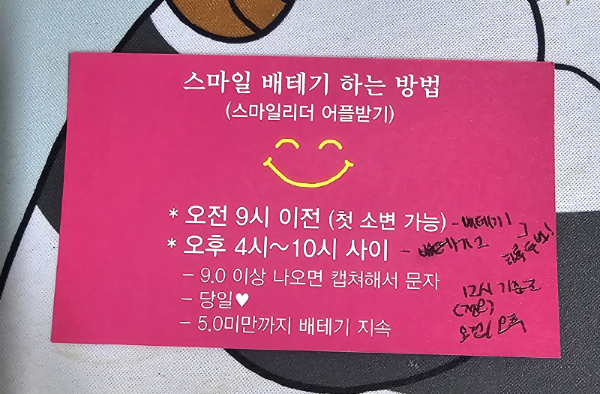 스마일 배테기 하는 방법
(스마일리더 어플받기)
* 오전 9시 이전 (첫 소변 가능) - 배테기1
* 오후 4시~10시 사이 - 배테기2
하루 두번!
- 9.0 이상 나오면 캡쳐해서 문자
- 당일♥
- 5.0미만까지 배테기 지속
12시 기준으로
오전/오후